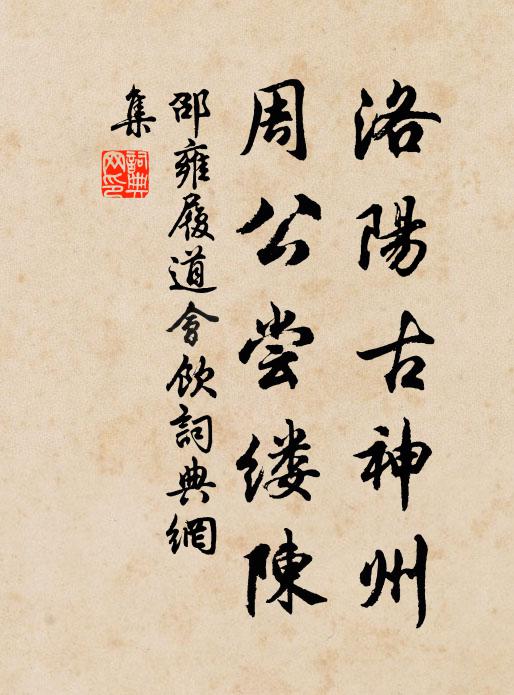 洛陽古神州
周公尝缕陳
邵雍履道會飲詞典網
集
詞典
网印